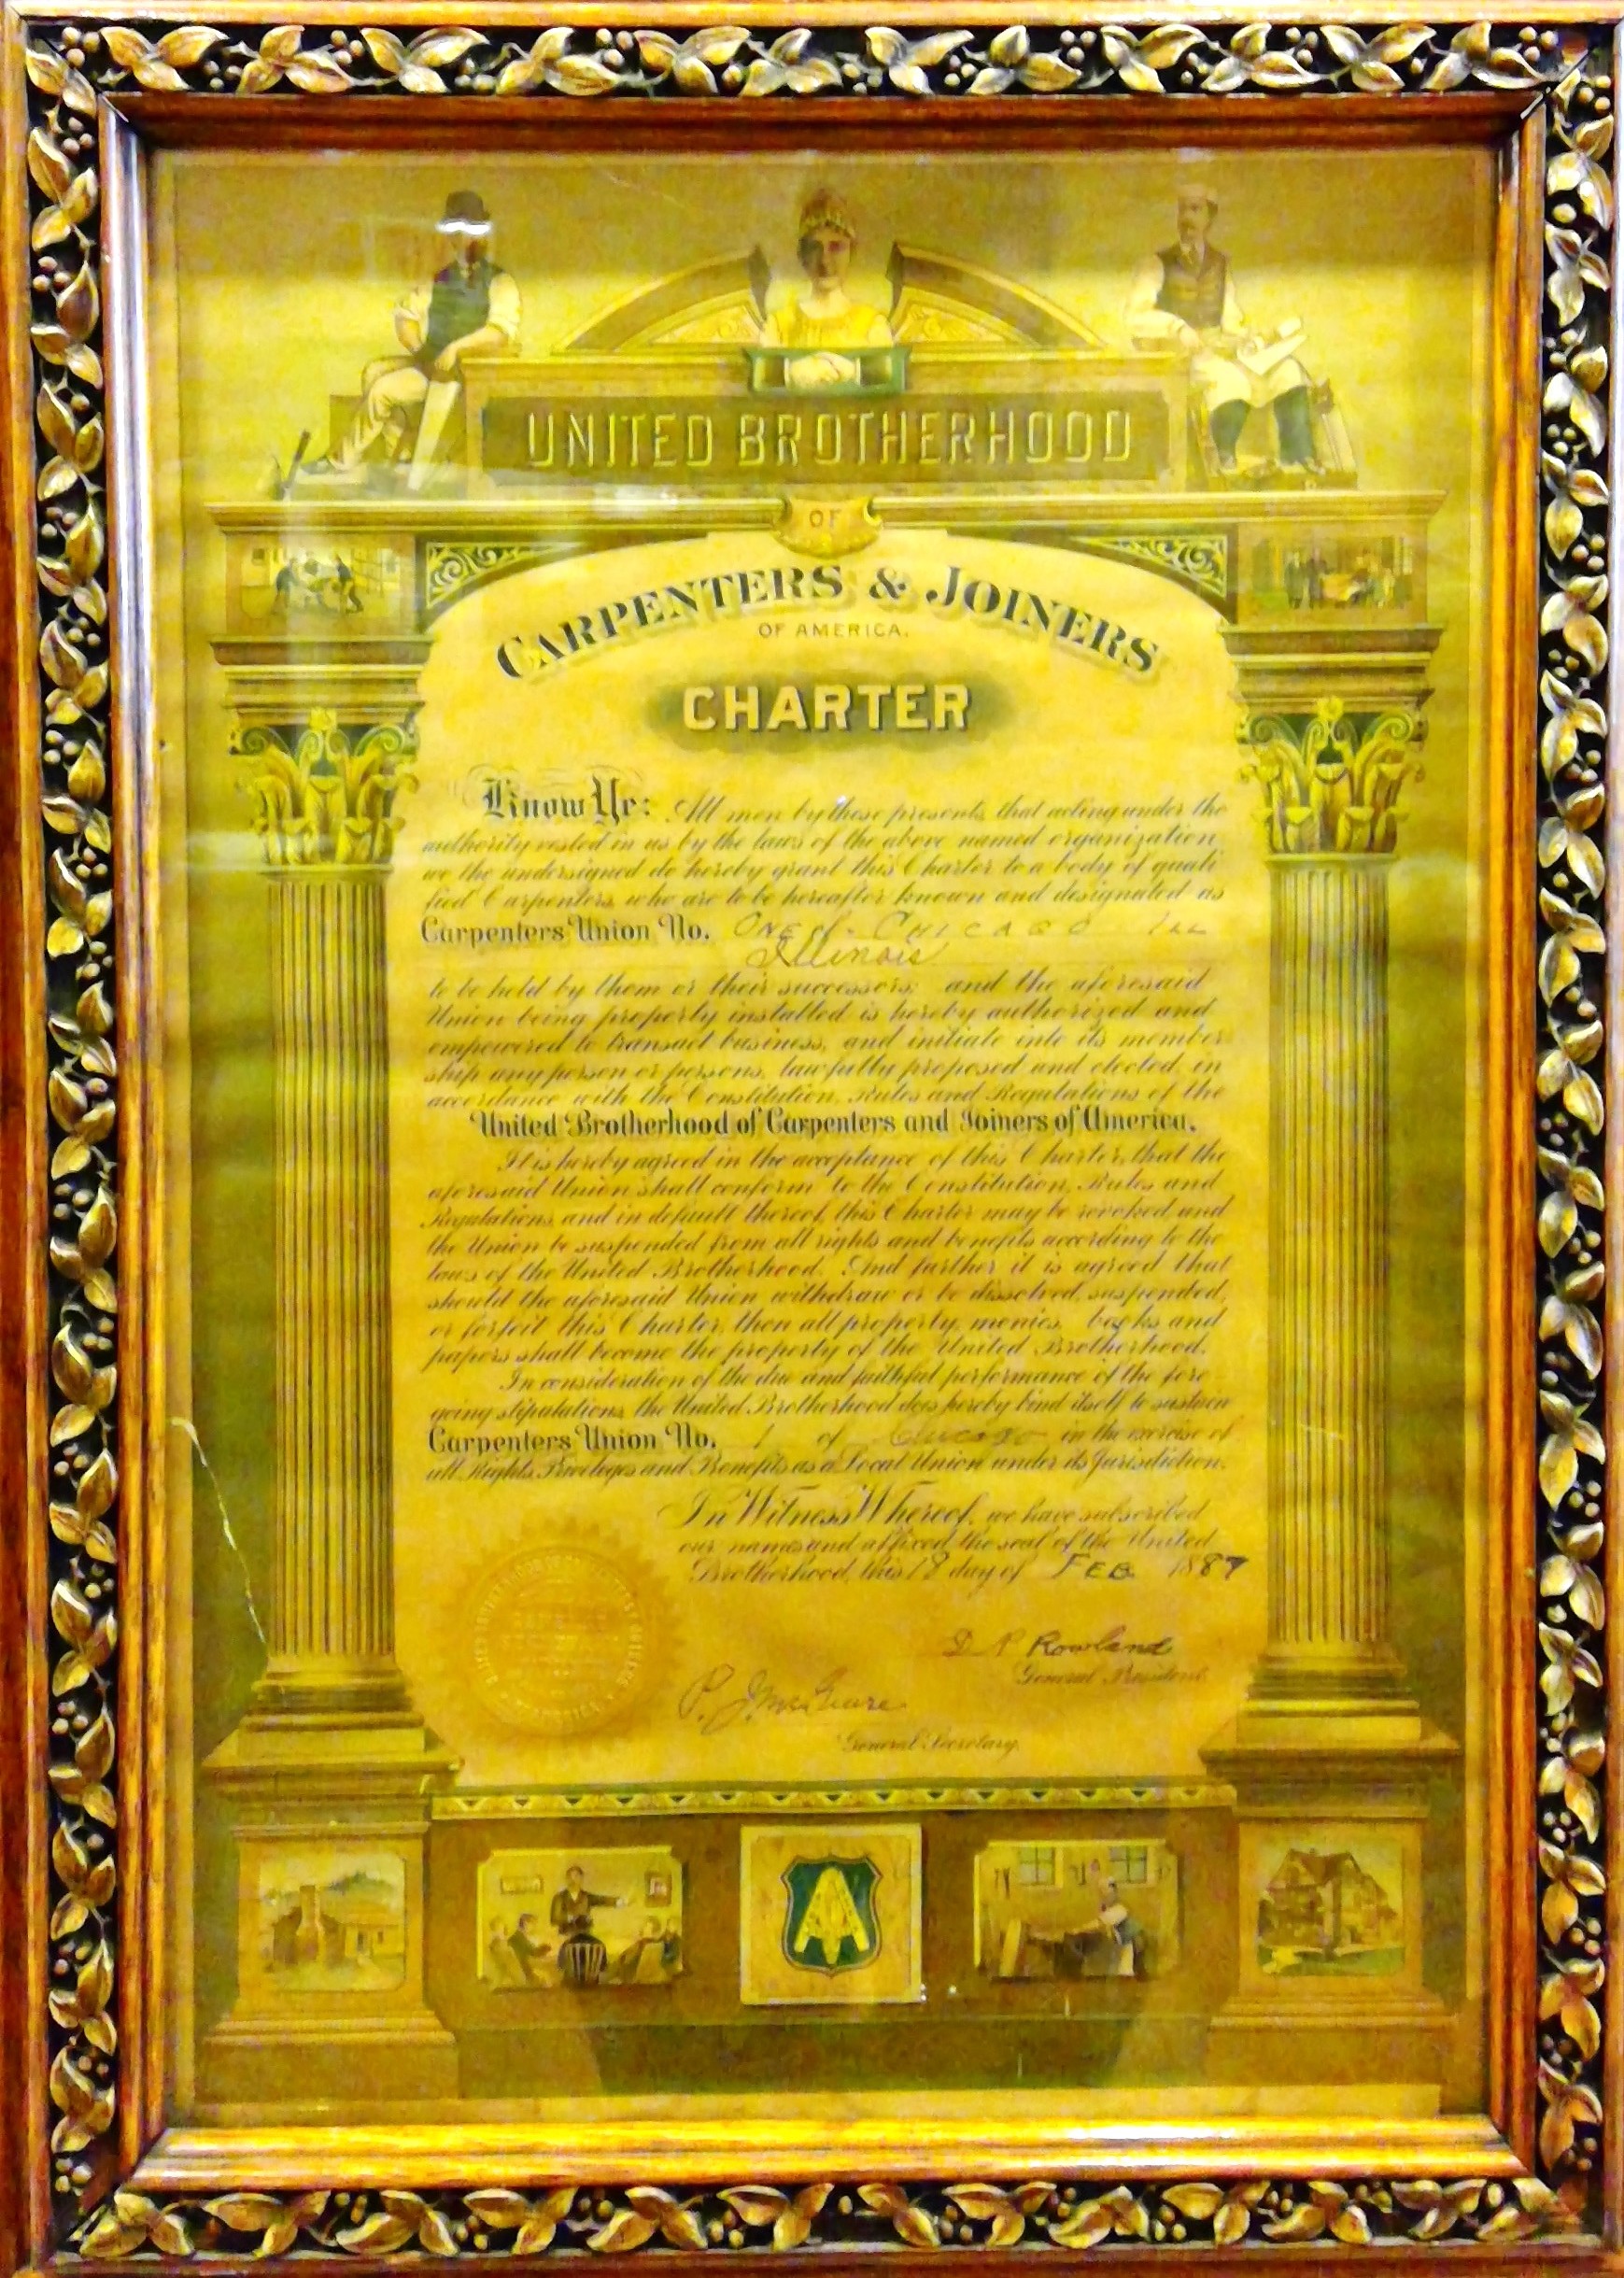 UNITED BROTHERHOOD
OF
CARPENTERS & JOINERS
OF AMERICA.
CHARTER
Know Ye: All men by these presents, that acting under the
authority vested in us by the laws of the above named organization,
we the undersigned do hereby grant this Charter to a body of quali
fied Carpenters, who are to be hereafter known and designated as
Carpenters Union No. ONE of CHICAGO ILL
Illinois
to be held by them or their successors; and the aforesaid
Union being properly installed is hereby authorized and
empowered to transact business, and initiate into its member
ship any person or persons, lawfully proposed and elected, in
accordance with the Constitution, Rules and Regulations of the
United Brotherhood of Carpenters and Joiners of America.
It is hereby agreed in the acceptance of this Charter, that the
aforesaid Union shall conform to the Constitution, Rules and
Regulations, and in default thereof, this Charter may be revoked and
the Union be suspended from all rights and benefits according to the
laws of the United Brotherhood. And further it is agreed that
should the aforesaid Union withdraw or be dissolved, suspended,
or forfeit this Charter, then all property, monies, books and
papers shall become the property of the United Brotherhood.
In consideration of the due and faithful performance of the fore
going stipulations, the United Brotherhood does hereby bind itself to sustain
Carpenters Union No. 1 of Chicago in the exercise of
all Rights, Privileges and Benefits as a Local Union under its Jurisdiction.
In Witness Whereof, we have subscribed
our names and affixed the seal of the United
Brotherhood, this 18 day of FEB 1887
D P Rowland
General President.
P. J. McGuire
General Secretary.